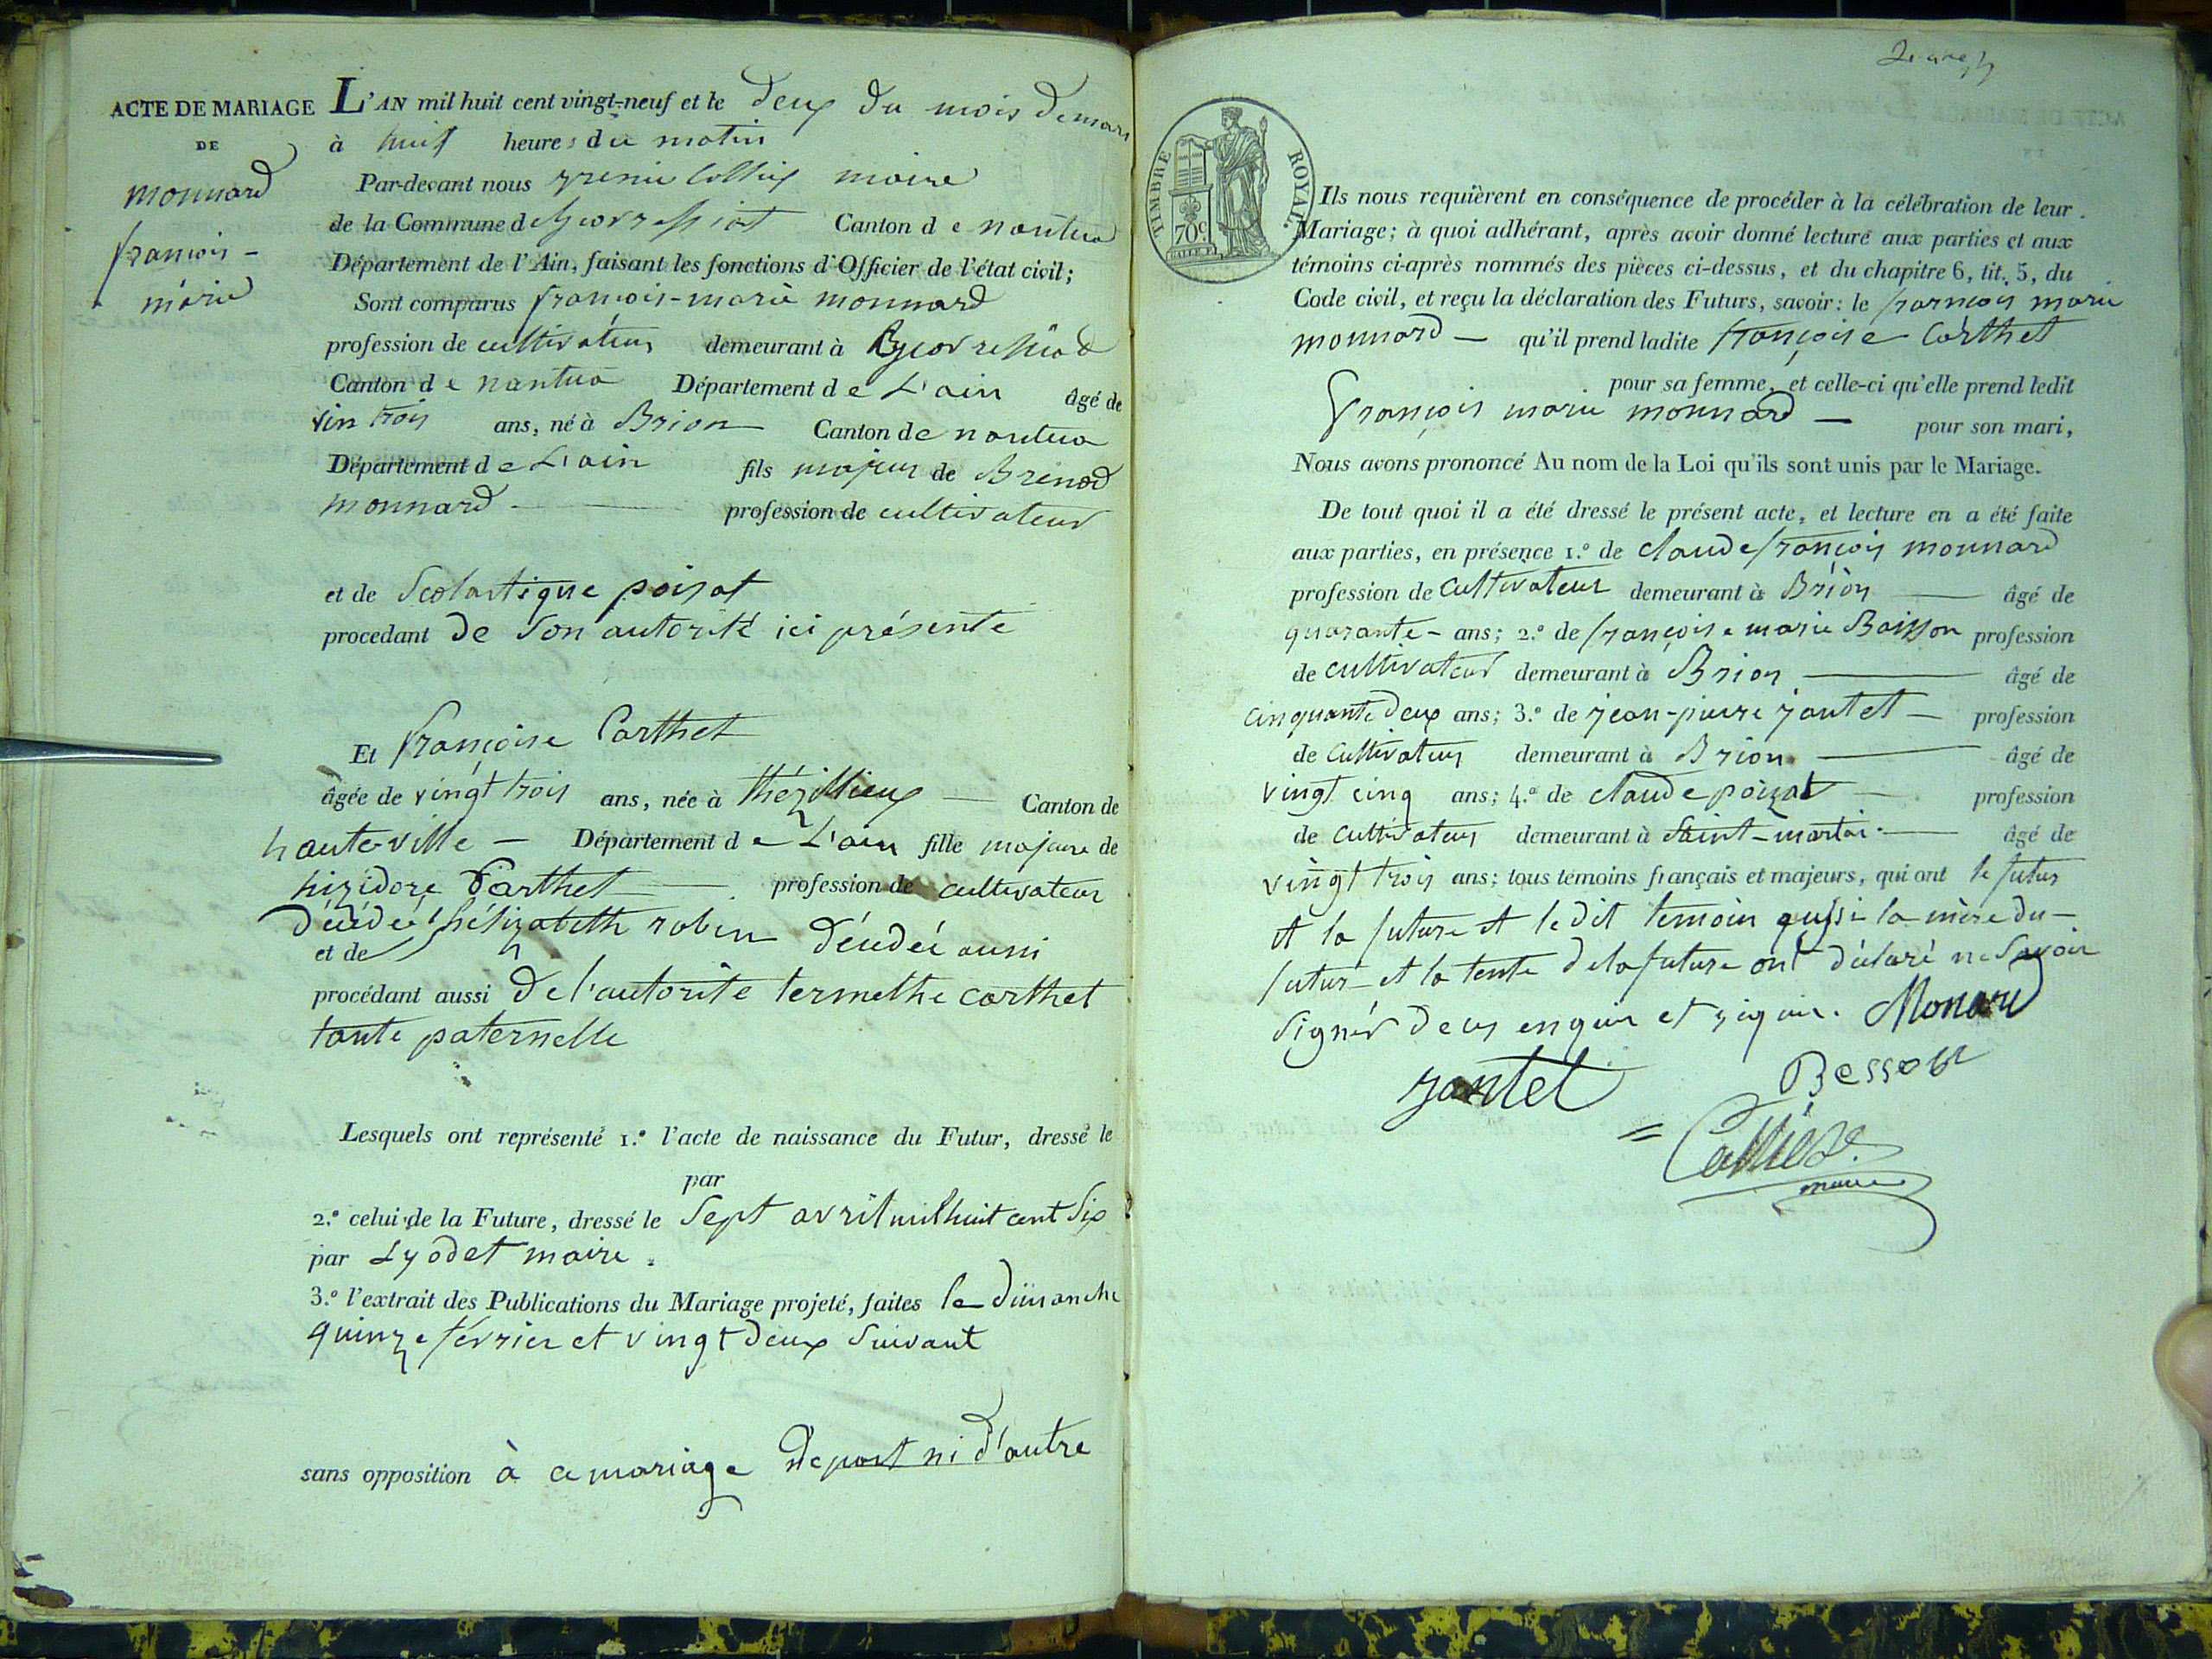 ACTE DE MARIAGE
DE
monnard
francois-
marie
L'AN mil huit cent vingt-neuf et le deux du mois de mars
à huit heures du matin
Par-devant nous maire
de la Commune de Canton de nantua
Département de l'Ain, faisant les fonctions d'Officier de l'état civil;
Sont comparus françois-marie monnard
profession de cultivateur demeurant à
Canton de nantua Département de L'ain âgé de
vin trois ans, né à Brion Canton de nantua
Département de L'ain fils majeur de
monnard profession de cultivateur
et de Scolastique poisat
procedant de son autorité ici présente
Et françoise Carthet
âgée de vingt trois ans, née à thézillieux Canton de
hauteville Département de L'ain fille majeure de
hizidore Carthet profession de cultivateur
décédé
et de hélizabeth robin décédée aussi
procédant aussi de l'autorité carthet
tante paternelle
Lesquels ont représenté 1.º l'acte de naissance du Futur, dressé le
par
2.º celui de la Future, dressé le Sept avril mil huit cent Six
par Lyodet maire.
3.º l'extrait des Publications du Mariage projeté, faites le dimanche
quinze février et vingt deux Suivant
sans opposition à ce mariage de part ni d'autre
TIMBRE ROYAL.
70c.
Ils nous requièrent en conséquence de procéder à la célébration de leur
Mariage; à quoi adhérant, après avoir donné lecture aux parties et aux
témoins ci-après nommés des pièces ci-dessus, et du chapitre 6, tit. 5, du
Code civil, et reçu la déclaration des Futurs, savoir: le françois marie
monnard — qu'il prend ladite françoise Carthet
pour sa femme, et celle-ci qu'elle prend ledit
françois marie monnard — pour son mari,
Nous avons prononcé Au nom de la Loi qu'ils sont unis par le Mariage.
De tout quoi il a été dressé le présent acte, et lecture en a été faite
aux parties, en présence 1.º de claude françois monnard
profession de Cultivateur demeurant à Brion âgé de
quarante ans; 2.º de françois marie Baisson profession
de cultivateur demeurant à Brion âgé de
cinquante deux ans; 3.º de jean-pierre jantet profession
de Cultivateur demeurant à Brion âgé de
vingt cinq ans; 4.º de claude poizat profession
de cultivateur demeurant à Saint-martin âgé de
vingt trois ans; tous témoins français et majeurs, qui ont le futur
et la future et le dit temoin aussi la mère du
futur et la tente de la future ont déclaré ne Savoir
Signér de ces enquis et Monard
jantet Besson
maire